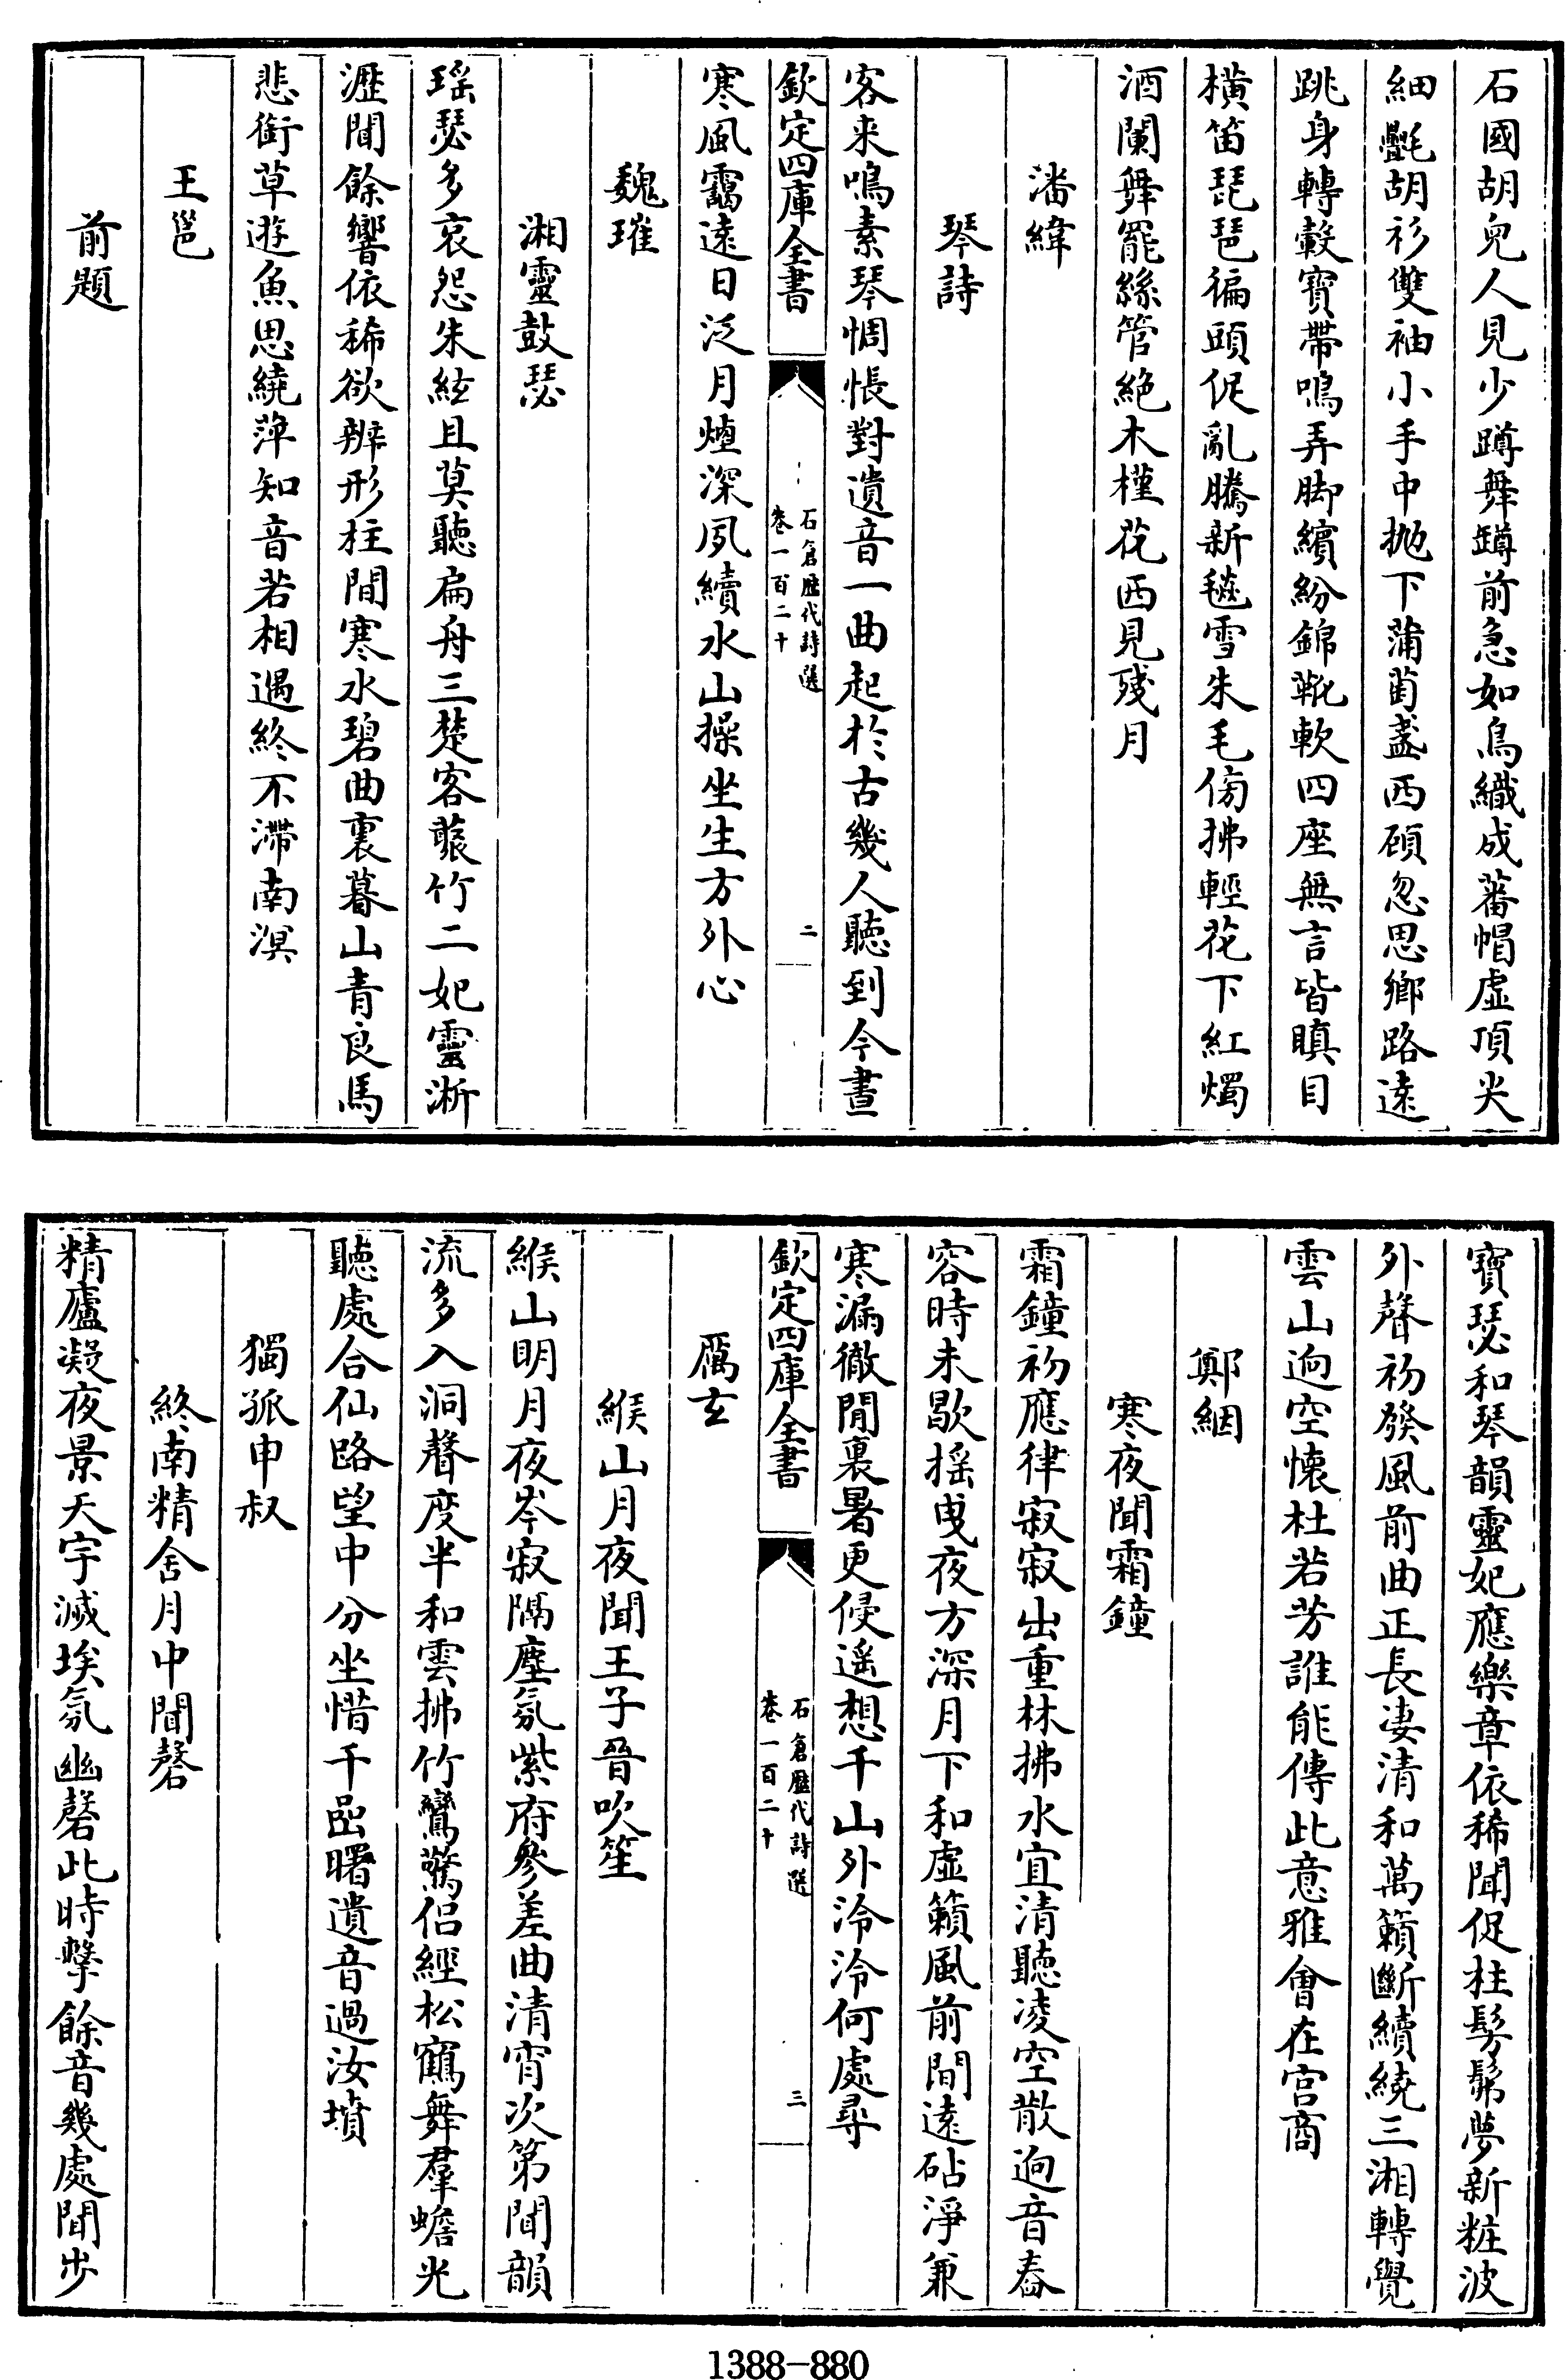 石國胡兒人見少蹲舞罇前急如鳥織成蕃帽虛頂尖
細氎胡衫雙袖小手中抛下蒲萄盞西頋忽思鄉路遠
跳身轉轂寳帶鳴弄脚繽紛錦靴軟四座無言皆瞋目
横笛琵琶徧頭促亂騰新毯雪朱毛傍拂輕花下紅燭
酒闌舞罷絲管絶木槿花西見殘月
潘緯
琴詩
客来鳴素琴惆悵對遺音一曲起於古幾人聽到今晝
欽定四庫全書
石倉歴代詩選
卷一百二十
二
寒風靄遠日泛月煙深夙續水山操坐生方外心
魏璀
湘靈鼓瑟
瑶瑟多哀怨朱絃且莫聽扁舟三楚客藂竹二妃靈淅
瀝聞餘響依稀欲辨形柱間寒水碧曲裏暮山青良馬
悲銜草遊魚思繞萍知音若相遇終不滯南溟
王邕
前題
寳瑟和琴韻靈妃應樂章依稀聞促柱髣髴夢新粧波
外聲初發風前曲正長凄清和萬籟斷續繞三湘轉覺
雲山逈空懷杜若芳誰能傳此意雅會在宫商
鄭絪
寒夜聞霜鐘
霜鐘初應律寂寂出重林拂水宜清聽凌空散逈音舂
容時未歇揺曵夜方深月下和虛籟風前間遠砧淨兼
寒漏徹閒裏暑更侵遥想千山外泠泠何處尋
欽定四庫全書
石倉歴代詩選
卷一百二十
三
厲玄
緱山月夜聞王子晉吹笙
緱山明月夜岑寂隔塵氛紫府參差曲清宵次第聞韻
流多入洞聲度半和雲拂竹鸞驚侣經松鶴舞羣蟾光
聽處合仙路望中分坐惜千巖曙遺音過汝墳
獨孤申叔
終南精舍月中聞磬
精廬凝夜景天宇滅埃氛幽磬此時擊餘音幾處聞步
1388-880